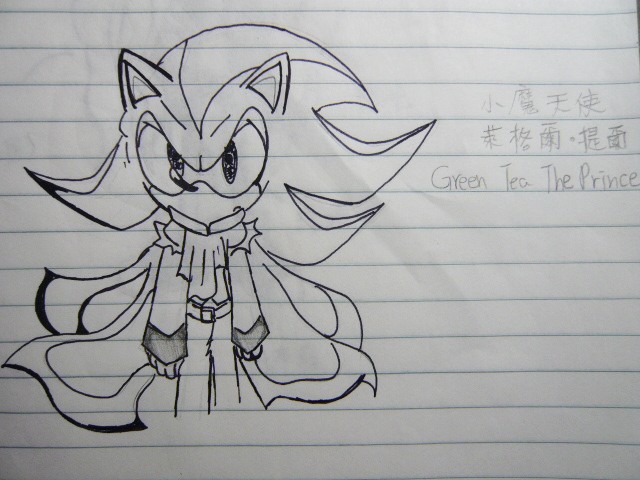 小魔天使
萊格爾・提爾
Green Tea The Prince